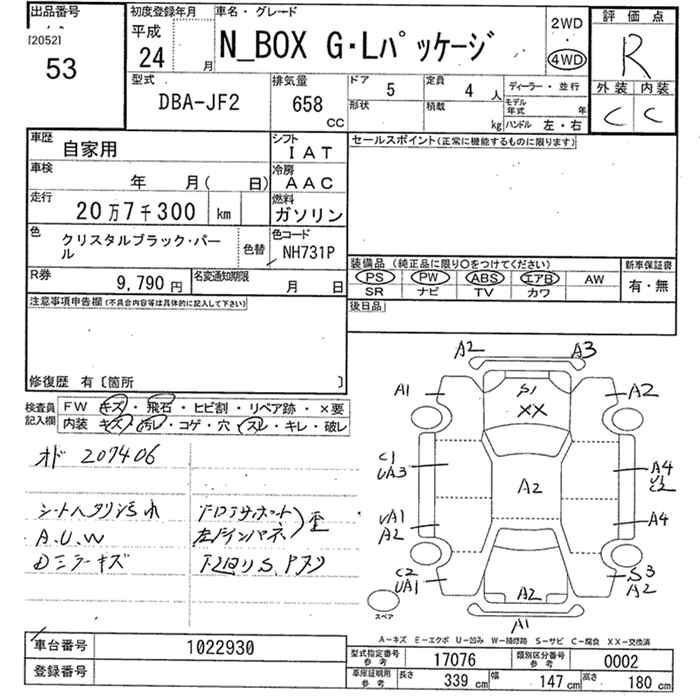 出品番号 初度登録年月 車名・グレード 2WD 評価点
[2052] 平成 24 月 N_BOX G・Lパッケージ 4WD R
53
外装 内装
C C
型式 排気量 ドア 定員 ディーラー・並行
DBA-JF2 658 CC 5 4 人
形状 積載 kg モデル年式 年
ハンドル 左・右
車歴 自家用 シフト IAT セールスポイント(正常に機能するものに限ります)
車検 年 月( 日) 冷房 AAC
走行 20万7千300 km 燃料 ガソリン
色 クリスタルブラック・パール 色替 色コード NH731P
装備品(純正品に限り○をつけてください) 新車保証書
PS PW ABS エアB AW 有・無
SR ナビ TV カワ
R券 9,790円 名変通知期限 月 日
後日品
注意事項申告欄(不具合内容等は具体的に記入して下さい)
修復歴 有〔箇所 〕
検査員記入欄 FW キズ・飛石・ヒビ割・リペア跡・×要
内装 キズ・汚レ・コゲ・穴・スレ・キレ・破レ
オド 207406
シートヘタリ汚れ
A.U.W
Dミラーキズ
A2 A3
A1 S1 XX A2
C1 UA3 A2 A4
UA1 A2 A4
C2 UA1 A2 S3 A2
A1
スペア
A-キズ E-エクボ U-凹み W-補修跡 S-サビ C-腐食 XX-交換済
車台番号 1022930
登録番号
型式指定番号 参考 17076 類別区分番号 参考 0002
車庫証明用 参考 長さ 339 cm 幅 147 cm 高さ 180 cm